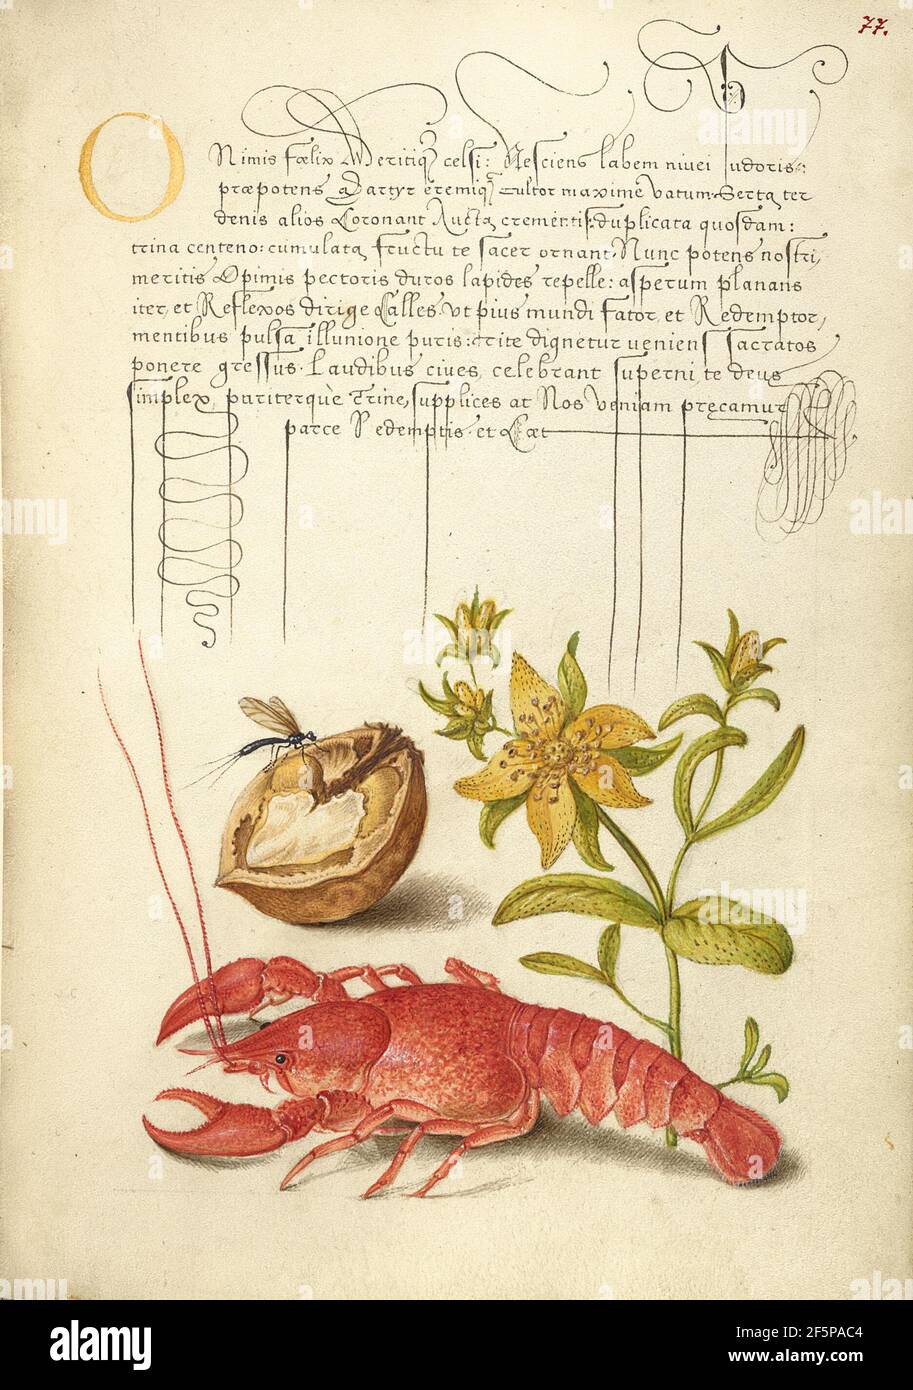 77.
O
Nimis fœlix Meritiq; celsi: Nesciens labem nivei pudoris:
præpotens Martyr eremiq; cultor maxime vatum. Serta ter
denis alios Coronant Aucta crementis: duplicata quosdam:
trina centeno: cumulata fructu te sacer ornant. Nunc potens nostri,
meritis Opimis pectoris duros lapides repelle: asperum planans
iter, et Reflexos dirige Calles. Vt pius mundi sator, et Redemptor,
mentibus pulsa illunione puris: rite dignetur veniens sacratos
ponere gressus. Laudibus ciues, celebrant superni, te deus
simplex, pariterquè Trine, supplices at Nos veniam precamur
parce Redemptis. et Cæt
alamy
alamy
alamy
Image ID: 2F5PAC4
www.alamy.com